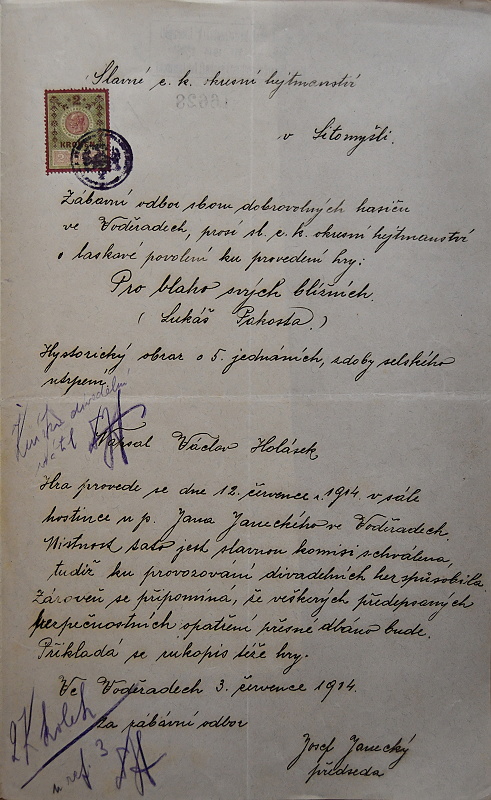 Slavné c. k. okresní hejtmanství
2
KORONA
2
v Litomyšli.
Zábavní odbor sboru dobrovolných hasičů
ve Voděradech, prosí sl. c. k. okresní hejtmanství
o laskavé povolení ku provedení hry:
Pro blaho svých bližních.
( Lukáš Pakosta. )
Hystorický obraz o 5. jednáních, z doby selského
utrpení.
divadelní
Napsal Václav Holásek
Hra provede se dne 12. července r. 1914. v sále
hostince u p. Jana Janeckého ve Voděradech.
Místnost tato jest slavnou komisí schválena,
tudíž ku provozování divadelních her spůsobilá.
Zároveň se připomíná, že veškerých předepsaných
bezpečnostních opatření přesně dbáno bude.
Přikládá se rukopis téže hry.
Ve Voděradech 3. července 1914.
Za zábavní odbor
2 K kolek
Josef Janecký
předseda